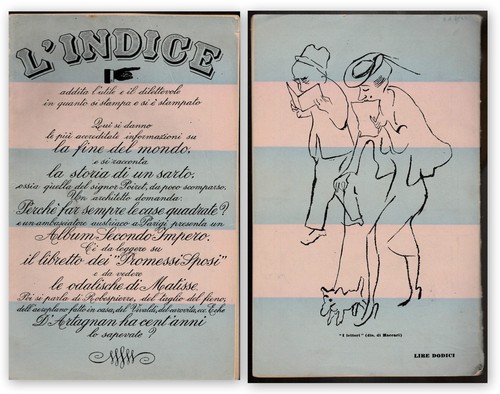 L'INDICE
addita l'utile e il dilettevole
in quanto si stampa e si è stampato
Qui si danno
le più accreditate informazioni su
la fine del mondo,
e si racconta
la storia di un sarto,
ossia quella del signor Poiret, da poco scomparso.
Un architetto domanda:
Perchè far sempre le case quadrate?
e un ambasciatore austriaco a Parigi presenta un
Album-Secondo-Impero.
C'è da leggere su
il libretto dei "Promessi Sposi"
e da vedere
le odalische di Matisse.
Poi si parla di Robespierre, del taglio del fieno,
dell'aeroplano fatto in casa, del Vivaldi, del ecc. Ecchè
D'Artagnan ha cent'anni
lo sapevate?
"I lettori" (dis. di Maccari)
LIRE DODICI